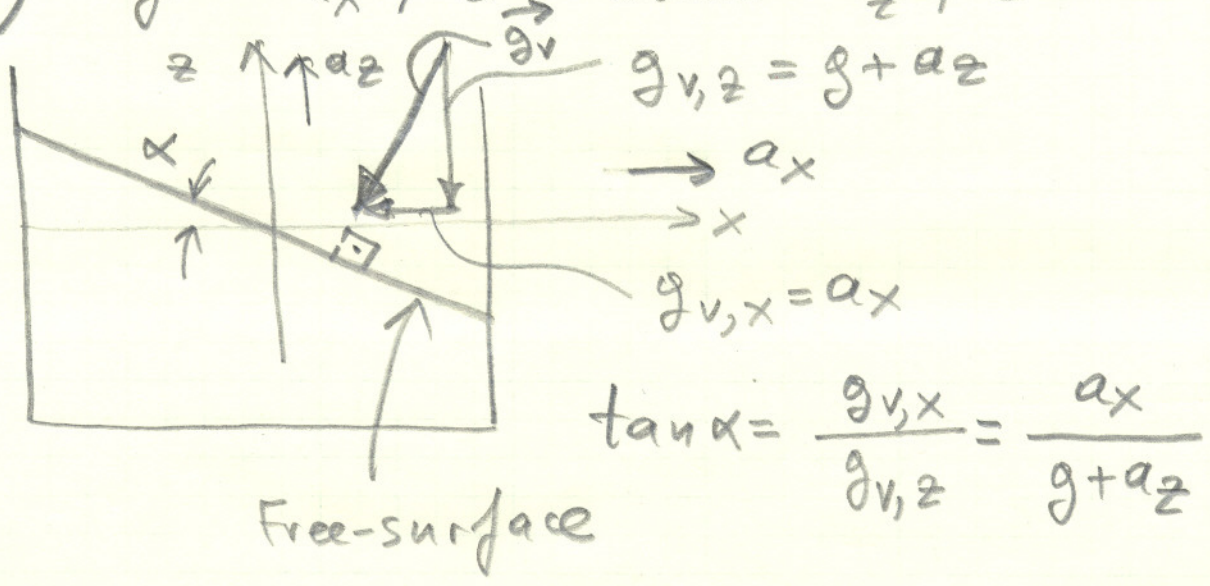 z
a_z
\vec{g_v}
g_{v,z} = g + a_z
α
a_x
x
g_{v,x} = a_x
tan α = \frac{g_{v,x}}{g_{v,z}} = \frac{a_x}{g + a_z}
Free-surface